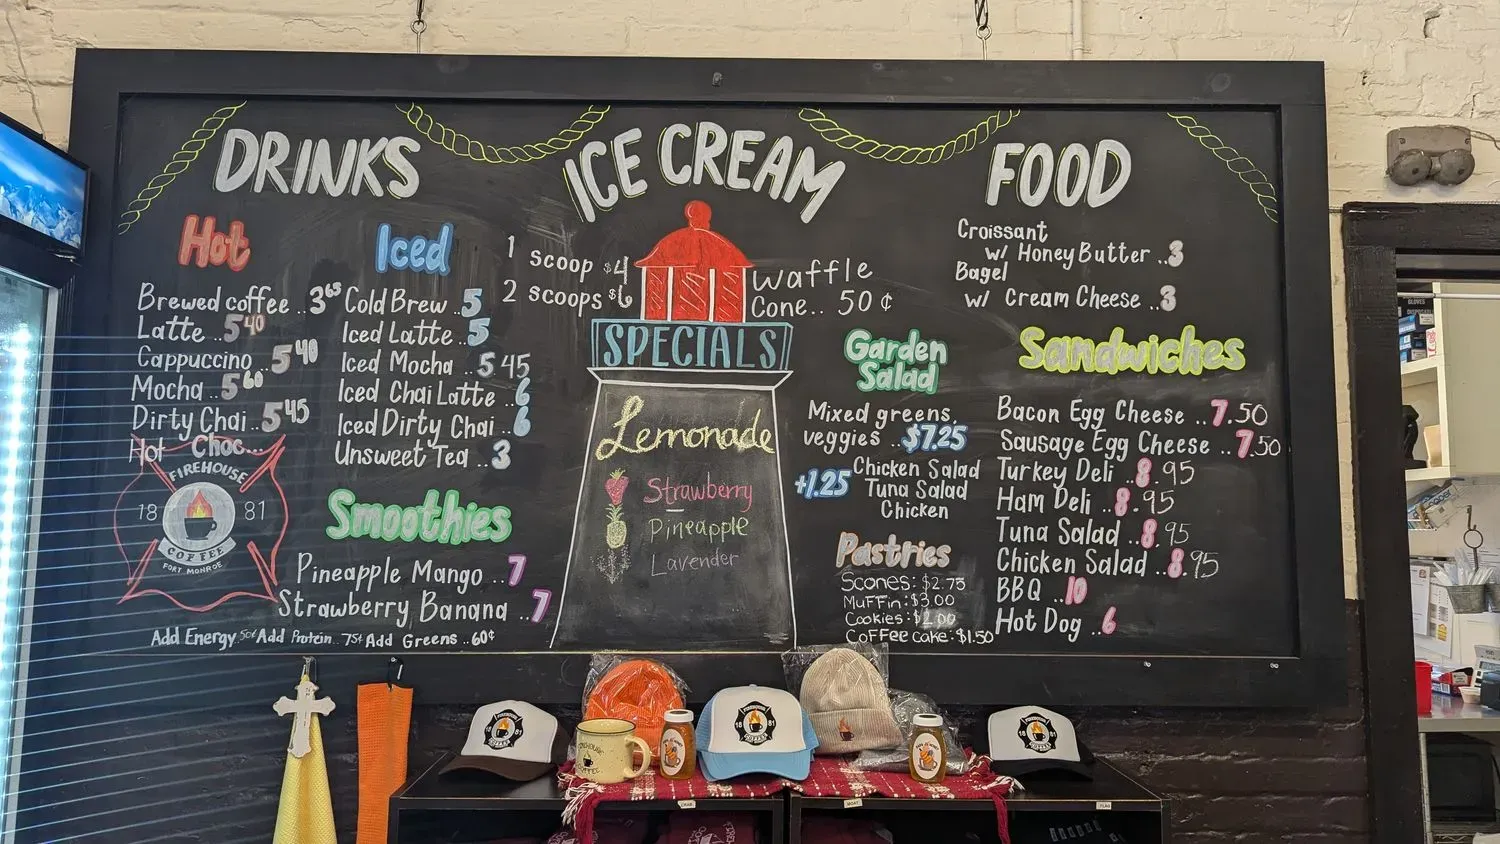 DRINKS
Hot
Brewed coffee..3 65
Latte..5 40
Cappuccino..5 40
Mocha..5 60
Dirty Chai..5 45
Hot Choc...
FIREHOUSE
18 81
COFFEE
FORT MONROE
Iced
Cold Brew..5
Iced Latte..5
Iced Mocha..5 45
Iced Chai Latte..6
Iced Dirty Chai..6
Unsweet Tea..3
Smoothies
Pineapple Mango..7
Strawberry Banana..7
Add Energy 50¢ Add Protein..75¢ Add Greens..60¢
ICE CREAM
1 scoop $4
2 scoops $6
Waffle
Cone..50¢
SPECIALS
Lemonade
Strawberry
Pineapple
Lavender
FOOD
Croissant
w/ Honey Butter..3
Bagel
w/ Cream Cheese..3
Garden
Salad
Mixed greens,
veggies..$7.25
+1.25 Chicken Salad
Tuna Salad
Chicken
Pastries
Scones: $2.75
Muffin: $3.00
Cookies: $2.00
Coffee cake: $1.50
Sandwiches
Bacon Egg Cheese..7.50
Sausage Egg Cheese..7.50
Turkey Deli..8.95
Ham Deli..8.95
Tuna Salad..8.95
Chicken Salad..8.95
BBQ..10
Hot Dog..6
FIREHOUSE
COFFEE
FIREHOUSE
COFFEE
FIREHOUSE
18 81
COFFEE
FIREHOUSE
18 81
COFFEE
GLOVES